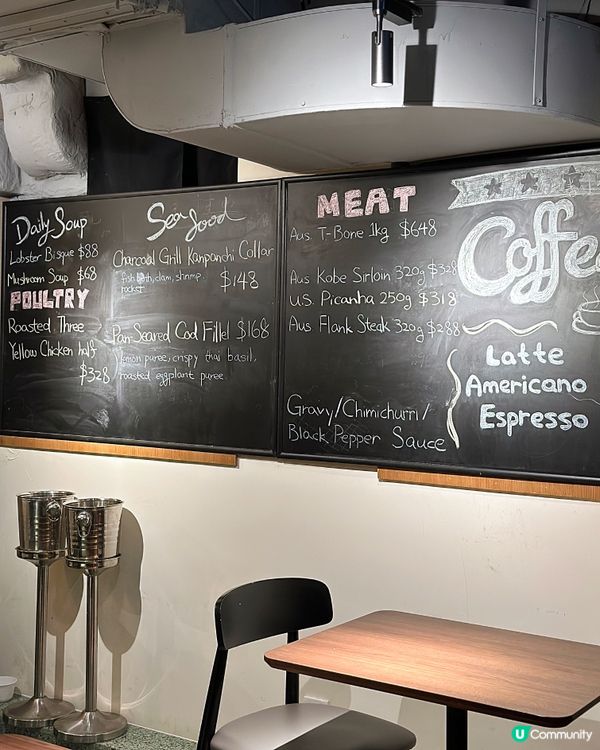 Daily Soup
Lobster Bisque $88
Mushroom Soup $68
POULTRY
Roasted Three
Yellow Chicken half
$328
Seafood
Charcoal Grill Kanpanchi Collar
fish broth, clam, shrimp,
rocket
$148
Pan-Seared Cod Fillet $168
lemon puree, crispy thai basil,
roasted eggplant puree
MEAT
Aus T-Bone 1kg $648
Aus Kobe Sirloin 320g $328
U.S. Picanha 250g $318
Aus Flank Steak 320g $288
Gravy/Chimichurri/
Black Pepper Sauce
Coffee
Latte
Americano
Espresso
U Community